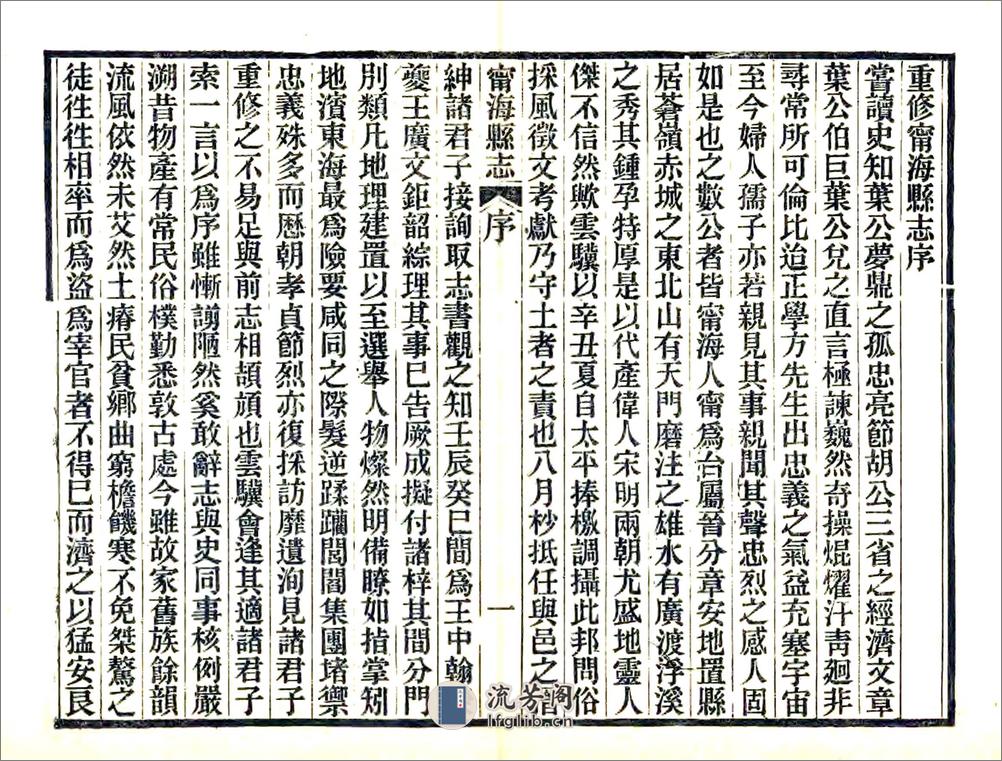 重修甯海縣志序
嘗讀史知葉公夢鼎之孤忠亮節胡公三省之經濟文章
葉公伯巨葉公兌之直言極諫巍然奇操焜耀汗靑廻非
尋常所可倫比迨正學方先生出忠義之氣益充塞宇宙
至今婦人孺子亦若親見其事親聞其聲忠烈之感人固
如是也之數公者皆甯海人甯爲台屬晉分章安地置縣
居蒼嶺赤城之東北山有天門磨注之雄水有廣渡浮溪
之秀其鍾孕特厚是以代產偉人宋明兩朝尤盛地靈人
傑不信然歟雲驥以辛丑夏自太平捧檄調攝此邦問俗
採風徵文考獻乃守土者之責也八月杪抵任與邑之
甯海縣志
序
一
紳諸君子接詢取志書觀之知壬辰癸巳間爲王中翰
夔王廣文鉅韶綜理其事已告厥成擬付諸梓其間分門
別類凡地理建置以至選舉人物燦然明備瞭如指掌矧
地濱東海最爲險要咸同之際髮逆蹂躪閭閻集團堵禦
忠義殊多而厯朝孝貞節烈亦復採訪靡遺洵見諸君子
重修之不易足與前志相頡頏也雲驥會逢其適諸君子
索一言以爲序雖慚謭陋然奚敢辭志與史同事核例嚴
溯昔物產有常民俗樸勤悉敦古處今雖故家舊族餘韻
流風依然未艾然土瘠民貧鄉曲窮檐饑寒不免桀驁之
徒徃徃相率而爲盜爲宰官者不得已而濟之以猛安良
流芳阁
lfglib.cn